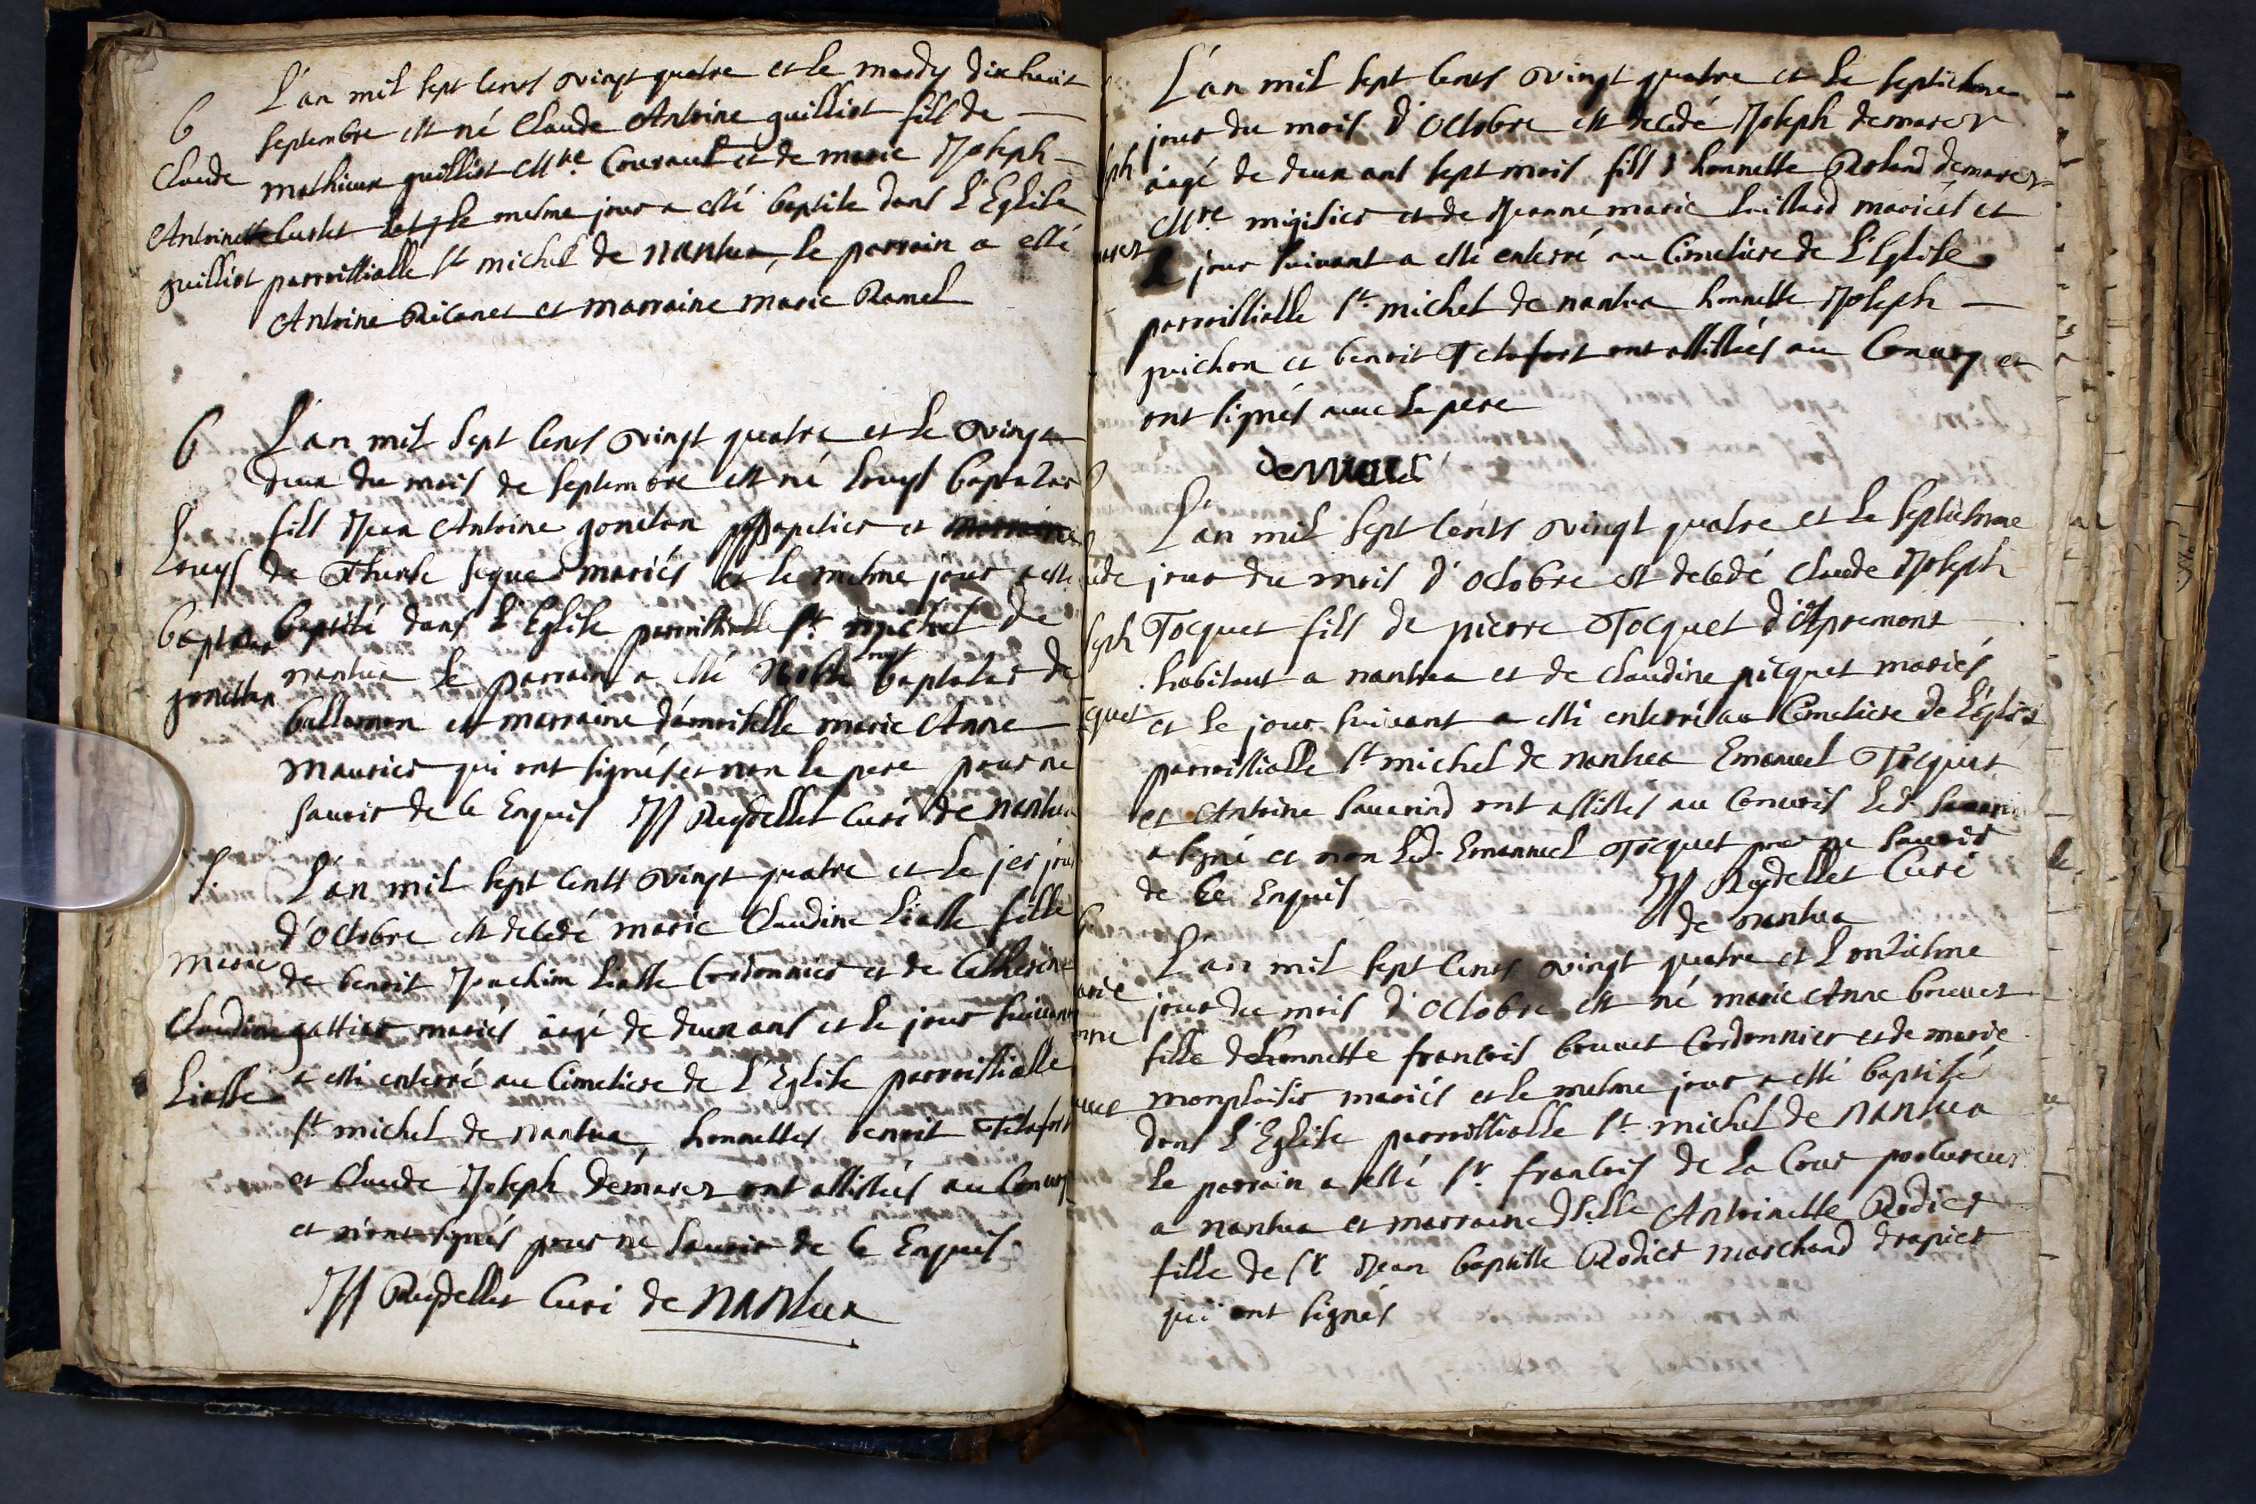 L'an mil sept cents vingt quatre et le mardy dix huit
6
septembre est né Claude Antoine guilliot fils de
Claude
mathieux guilliot Mtre Couraut et de marie Joseph
Antoine
le mesme jour a esté baptise dans L'Eglise
guilliot
parroissialle St michel de nantua, le parrain a esté
Antoine Ricanet et marraine marie Ramel
6
L'an mil sept cents vingt quatre et le vingt
deux du mois de septembre est né Louys baptazar
fils Jean Antoine goneton papetier et
Louys
de mariés et le mesme jour a esté
baptazar
baptisé dans L'Eglise parroissialle St michel de
gonettan
nantua le parrain a esté Noble baptazar de
ballamon et marraine demoiselle marie Anne
maurier qui ont signés et non le pere pour ne
savoir de ce Enquis JJ Reydellet Curé de nantua
S.
L'an mil sept cents vingt quatre et le jer jour
d'octobre est decedé marie Claudine Liasse fille
marie
de benoit Joachim Liasse Cordonnier et de Catherine
Claudine
gattier mariés aagé de deux ans et le jour suivant
Liasse
a esté enterré au Cimetiere de L'Eglise parroissialle
St michel de nantua, honnettes benoit Tetafort
et Claude Joseph demarez ont assistés au Convoy
et n'ont signés pour ne savoir de ce Enquis
JJ Reydellet Curé de nantua
L'an mil sept cents vingt quatre et le septiesme
jour du mois d'octobre est decedé Joseph demarez
seph
aagé de deux ans sept mois fils d'honnette Roland demarez
Mtre migisier et de Jeanne marie mariés et
marez
le jour suivant a esté enterré au Cimetiere de L'Eglise
parroissialle St michel de nantua honnette Joseph
guichon et benoit Tetafort ont assistés au Convoy et
ont signés avec le pere
demarez
L'an mil sept cents vingt quatre et le septiesme
ude
jour du mois d'octobre est decedé Claude Joseph
seph
Tocquet fils de pierre Tocquet d'Apremont
habitant a nantua et de Claudine picquet mariés
cquet
et le jour suivant a esté enterré au Cimetiere de L'Eglise
parroissialle St michel de nantua Emanuel Tocquet
et Antoine Sauarind ont assistés au Convois Led. Sauarin
a signé et non Led. Emanuel Tocquet pour ne savoir
de ce Enquis
JJ Reydellet Curé
de nantua
L'an mil sept cents vingt quatre et L'onziesme
arie
jour du mois d'octobre est né marie Anne bouuet
nne
fille de honnette francois bouuet Cordonnier et de marie
monplaisir mariés et le mesme jour a esté baptisé
uuet
dans L'Eglise parroissialle St michel de nantua
le parrain a esté Sr francois de la Cour procureur
a nantua et marraine dselle Antoinette Rodier
fille de Sr Jean baptiste Rodier marchand drapier
qui ont signés